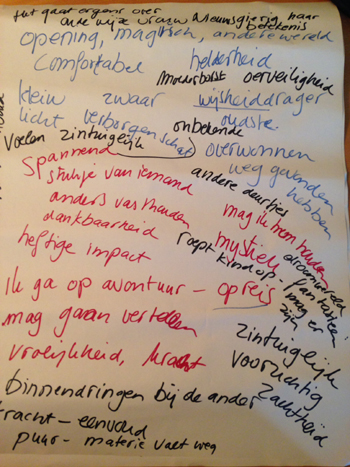 het gaat ergens over
oude wijze vrouw nieuwsgierig naar
betekenis
opening, magisch, andere wereld
comfortabel helderheid
Moederborst oerveiligheid
klein zwaar wijsheiddrager
licht verborgen onbekende oudste
voelen zintuigelijk schat overwonnen
Spannend weg gevonden
stukje van iemand andere deurtjes hebben
anders vasthouden mag ik hem houden
dankbaarheid mystiek
heftige impact roept kind op - fantasie
mag er
zijn
ik ga op avontuur - op reis
mag gaan vertellen zintuigelijk
vrolijkheid, kracht voorzichtig
zachtheid
binnendringen bij de ander
kracht - eenvoud
puur - materie valt weg